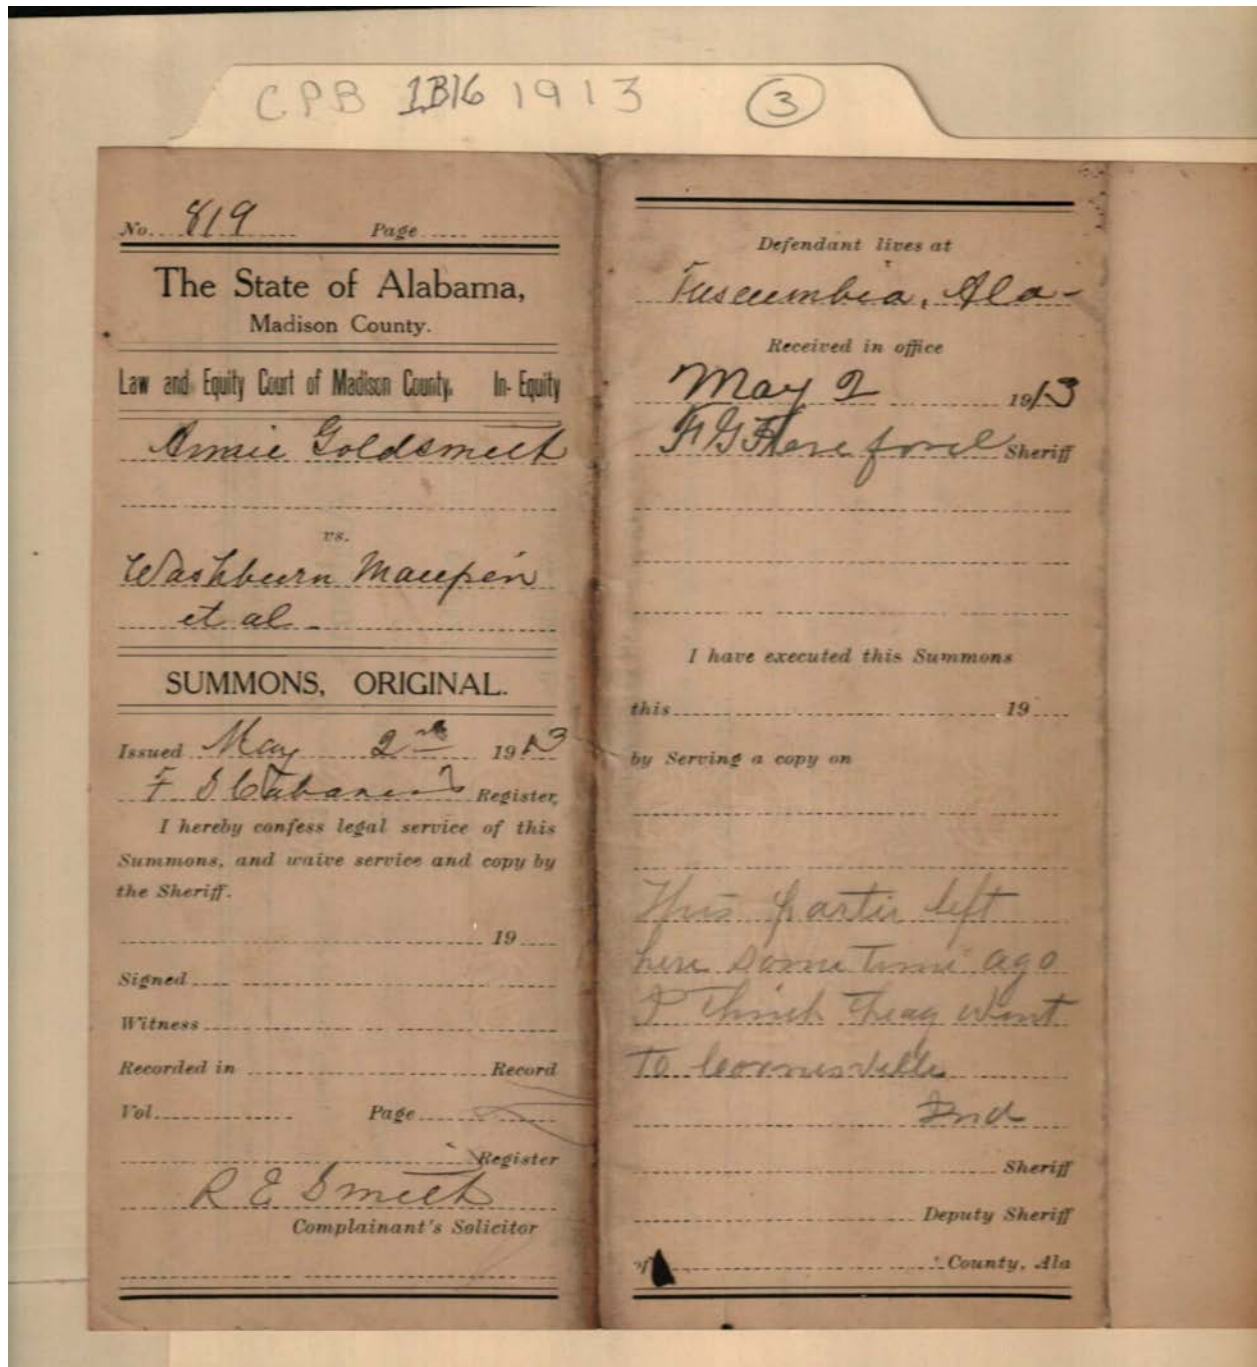 CPB 1B16 1913 3
No. 819 Page
The State of Alabama,
Madison County.
Law and Equity Court of Madison County, In-Equity
Annie Goldsmith
vs.
Washburn Maupin
et al
SUMMONS, ORIGINAL.
Issued May 2nd 1913
F S Cabaniss Register,
I hereby confess legal service of this
Summons, and waive service and copy by
the Sheriff.
19
Signed
Witness
Recorded in Record
Vol. Page
Register
R E Smith
Complainant's Solicitor
Defendant lives at
Tuscumbia, Ala-
Received in office
May 2 1913
Sheriff
I have executed this Summons
this 19
by Serving a copy on
This partie left
here some time ago
I think theay went
to
Ind
Sheriff
Deputy Sheriff
of County, Ala